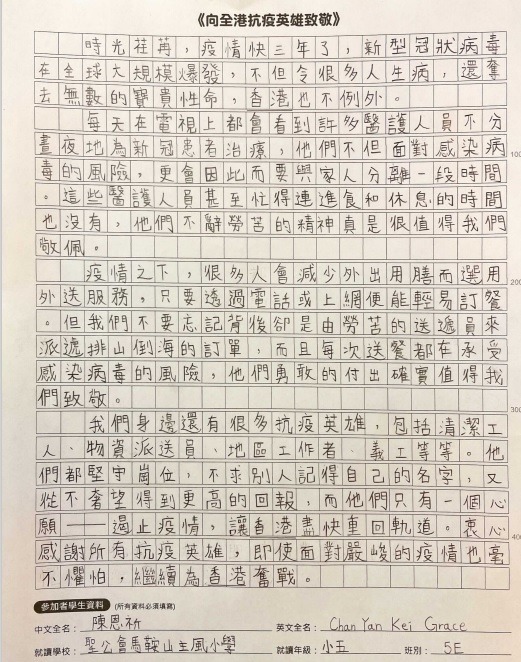 《向全港抗疫英雄致敬》
時光荏苒，疫情快三年了，新型冠狀病毒
在全球大規模爆發，不但令很多人生病，還奪
去無數的寶貴性命，香港也不例外。
每天在電視上都會看到許多醫護人員不分
晝夜地為新冠患者治療，他們不但面對感染病
100
毒的風險，更會因此而要與家人分離一段時間
。這些醫護人員甚至忙得連進食和休息的時間
也沒有，他們不辭勞苦的精神真是很值得我們
敬佩。
疫情之下，很多人會減少外出用膳而選用
200
外送服務，只要透過電話或上網便能輕易訂餐
。但我們不要忘記背後卻是由勞苦的送遞員來
派遞排山倒海的訂單，而且每次送餐都在承受
感染病毒的風險，他們勇敢的付出確實值得我
們致敬。
300
我們身邊還有很多抗疫英雄，包括清潔工
人、物資派送員、地區工作者、義工等等。他
們都堅守崗位，不求別人記得自己的名字，又
從不奢望得到更高的回報，而他們只有一個心
願——遏止疫情，讓香港盡快重回軌道。衷心
400
感謝所有抗疫英雄，即使面對嚴峻的疫情也毫
不懼怕，繼續為香港奮戰。
參加者學生資料 (所有資料必須填寫)
中文全名：陳恩祈 英文全名：Chan Yan Kei Grace
就讀學校：聖公會馬鞍山主風小學 就讀年級：小五 班別：5E